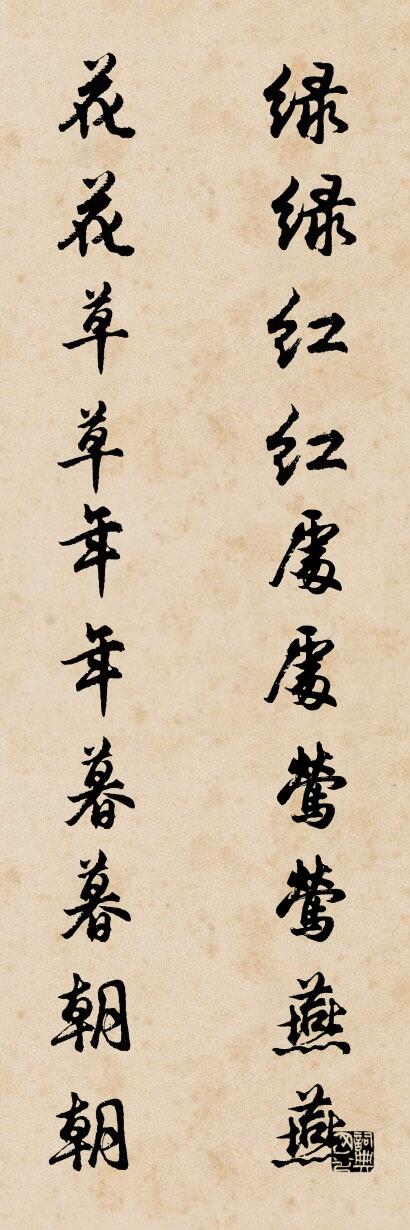 绿绿红红處處莺莺燕燕
花花草草年年暮暮朝朝